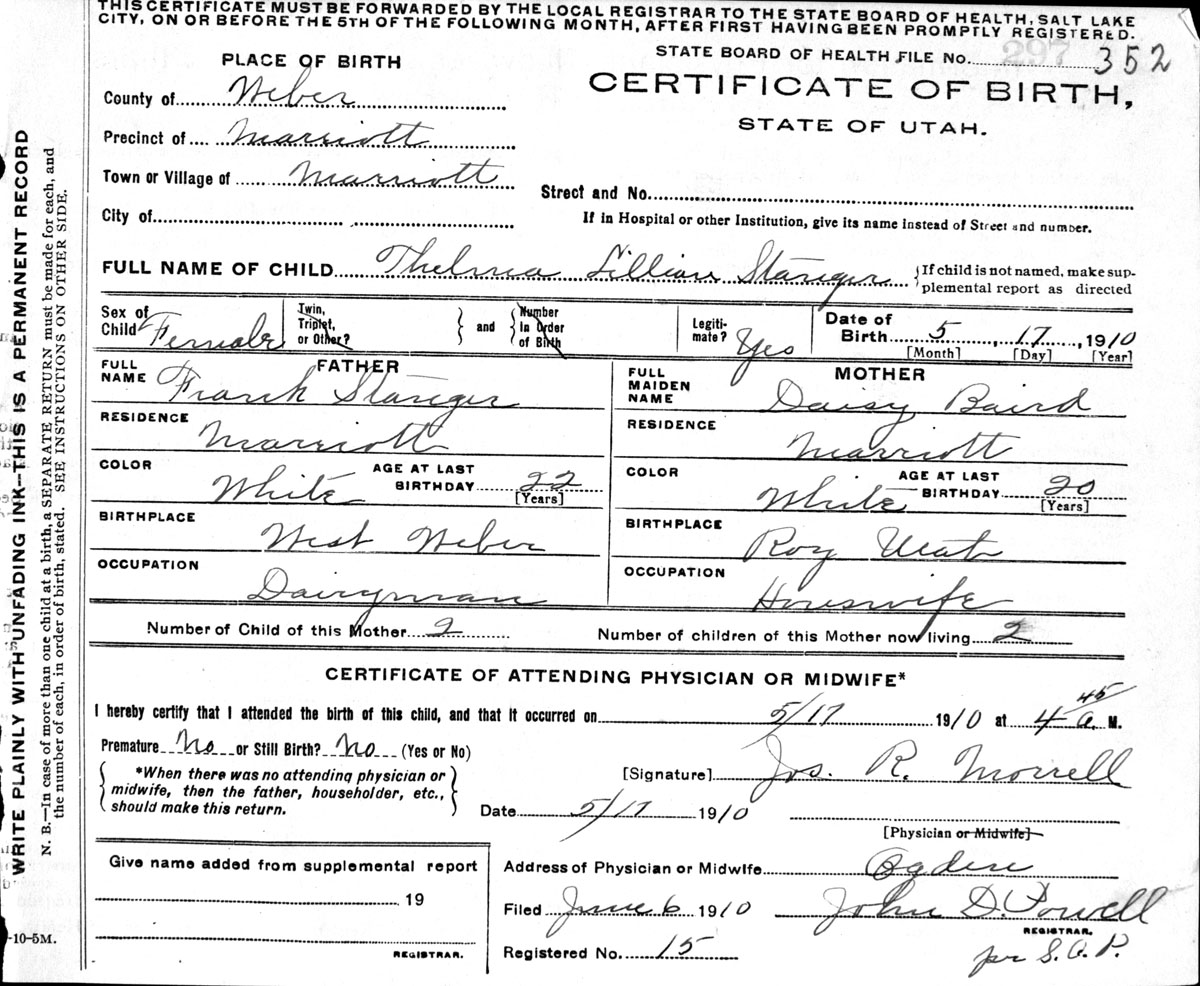 THIS CERTIFICATE MUST BE FORWARDED BY THE LOCAL REGISTRAR TO THE STATE BOARD OF HEALTH, SALT LAKE
CITY, ON OR BEFORE THE 5TH OF THE FOLLOWING MONTH, AFTER FIRST HAVING BEEN PROMPTLY REGISTERED.
STATE BOARD OF HEALTH FILE No. 297 352
PLACE OF BIRTH
CERTIFICATE OF BIRTH,
STATE OF UTAH.
County of Weber
Precinct of Marriott
Town or Village of Marriott
Street and No.
City of
If in Hospital or other Institution, give its name instead of Street and number.
FULL NAME OF CHILD Thelma Lillian Stanger {If child is not named, make sup-
plemental report as directed
Sex of Child Female
Twin, Triplet, or Other? } and { Number in Order of Birth
Legiti-mate? Yes
Date of Birth 5, 17, 1910
[Month] [Day] [Year]
FATHER
FULL NAME Frank Stanger
RESIDENCE Marriott
COLOR White AGE AT LAST BIRTHDAY 22 [Years]
BIRTHPLACE West Weber
OCCUPATION Dairyman
MOTHER
FULL MAIDEN NAME Daisy Baird
RESIDENCE Marriott
COLOR White AGE AT LAST BIRTHDAY 20 [Years]
BIRTHPLACE Roy Utah
OCCUPATION Houswife
Number of Child of this Mother 2 Number of children of this Mother now living 2
CERTIFICATE OF ATTENDING PHYSICIAN OR MIDWIFE*
I hereby certify that I attended the birth of this child, and that it occurred on 5/17 1910 at 4 45 a. M.
Premature No or Still Birth? No (Yes or No)
{*When there was no attending physician or
midwife, then the father, householder, etc.,
should make this return.}
[Signature] Jos. R. Morrell
Date 5/17 1910
[Physician or Midwife]
Give name added from supplemental report
19
REGISTRAR.
Address of Physician or Midwife Ogden
Filed June 6 1910 John D. Powell
REGISTRAR.
per S. A. P.
Registered No. 15
WRITE PLAINLY WITH UNFADING INK--THIS IS A PERMANENT RECORD
N. B.—In case of more than one child at a birth, a SEPARATE RETURN must be made for each, and
the number of each, in order of birth, stated. SEE INSTRUCTIONS ON OTHER SIDE.
-10-5M.